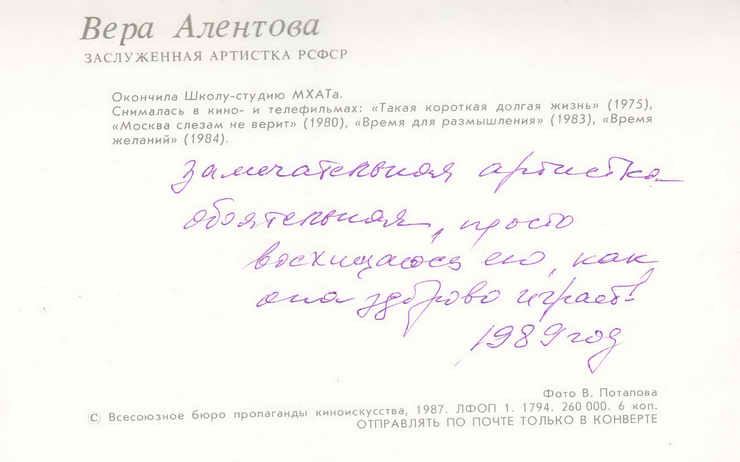 Вера Алентова
ЗАСЛУЖЕННАЯ АРТИСТКА РСФСР
Окончила Школу-студию МХАТа.
Снималась в кино- и телефильмах: «Такая короткая долгая жизнь» (1975),
«Москва слезам не верит» (1980), «Время для размышления» (1983), «Время
желаний» (1984).
Замечательная артистка
обоятельная, просто
восхищаюсь ею, как
она здорово играет!
1989 год
Фото В. Потапова
© Всесоюзное бюро пропаганды киноискусства, 1987. ЛФОП 1. 1794. 260 000. 6 коп.
ОТПРАВЛЯТЬ ПО ПОЧТЕ ТОЛЬКО В КОНВЕРТЕ